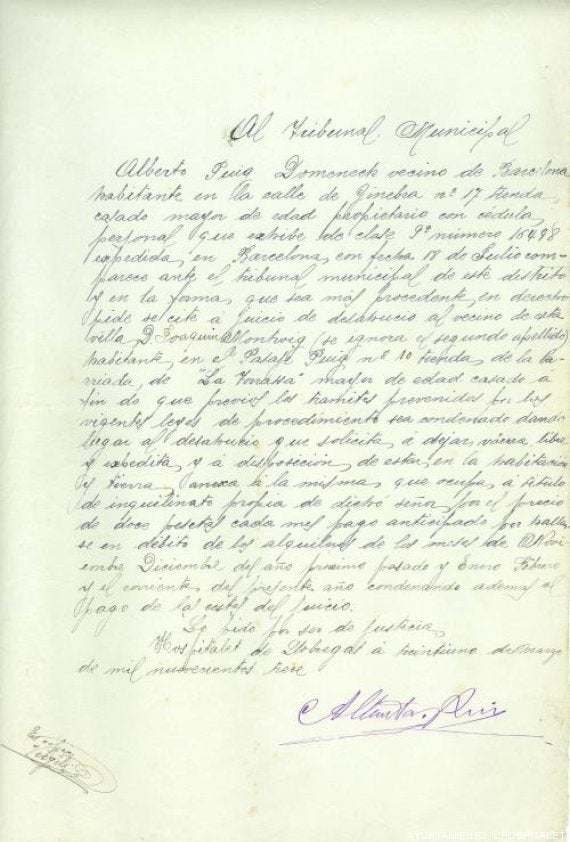 Al Tribunal Municipal
Alberto Puig Domenech vecino de Barcelona
habitante en la calle de Ginebra nº 17 tienda,
casado mayor de edad propietario con cédula
personal que exhibe de clase 9ª número 16498
expedida en Barcelona con fecha 17 de Julio com-
parece ante el tribunal municipal de este distrito
y en la forma que sea más procedente en derecho
pide se cite á juicio de desahucio al vecino de esta
villa D. Joaquin Montroig (se ignora el segundo apellido)
habitante en el Pasaje Puig nº 10 tienda, de la ba-
rriada de "La Torrassa" mayor de edad casado á
fin de que previos los tramites prevenidos por las
vigentes leyes de procedimiento sea condenado dando
lugar al desahucio que solicita, a dejar vacua libre
y expedita y á disposición de estar en la habitación
y tierra anexa á la misma que ocupa á título
de inquilinato propia de dicho señor por el precio
de doce pesetas cada mes pago anticipado por hallar
se en débito de los alquileres de los meses de Novi-
embre Diciembre del año proximo pasado y Enero Febrero
y el corriente del presente año condenando ademas al
pago de las costas del juicio.
Lo pido por ser de justicia,
Hospitalet de Llobregat á veintiuno de Marzo
de mil nuevecientos trece
Alberto Puig
AYUNTAMIENTO L'HOSPITALET